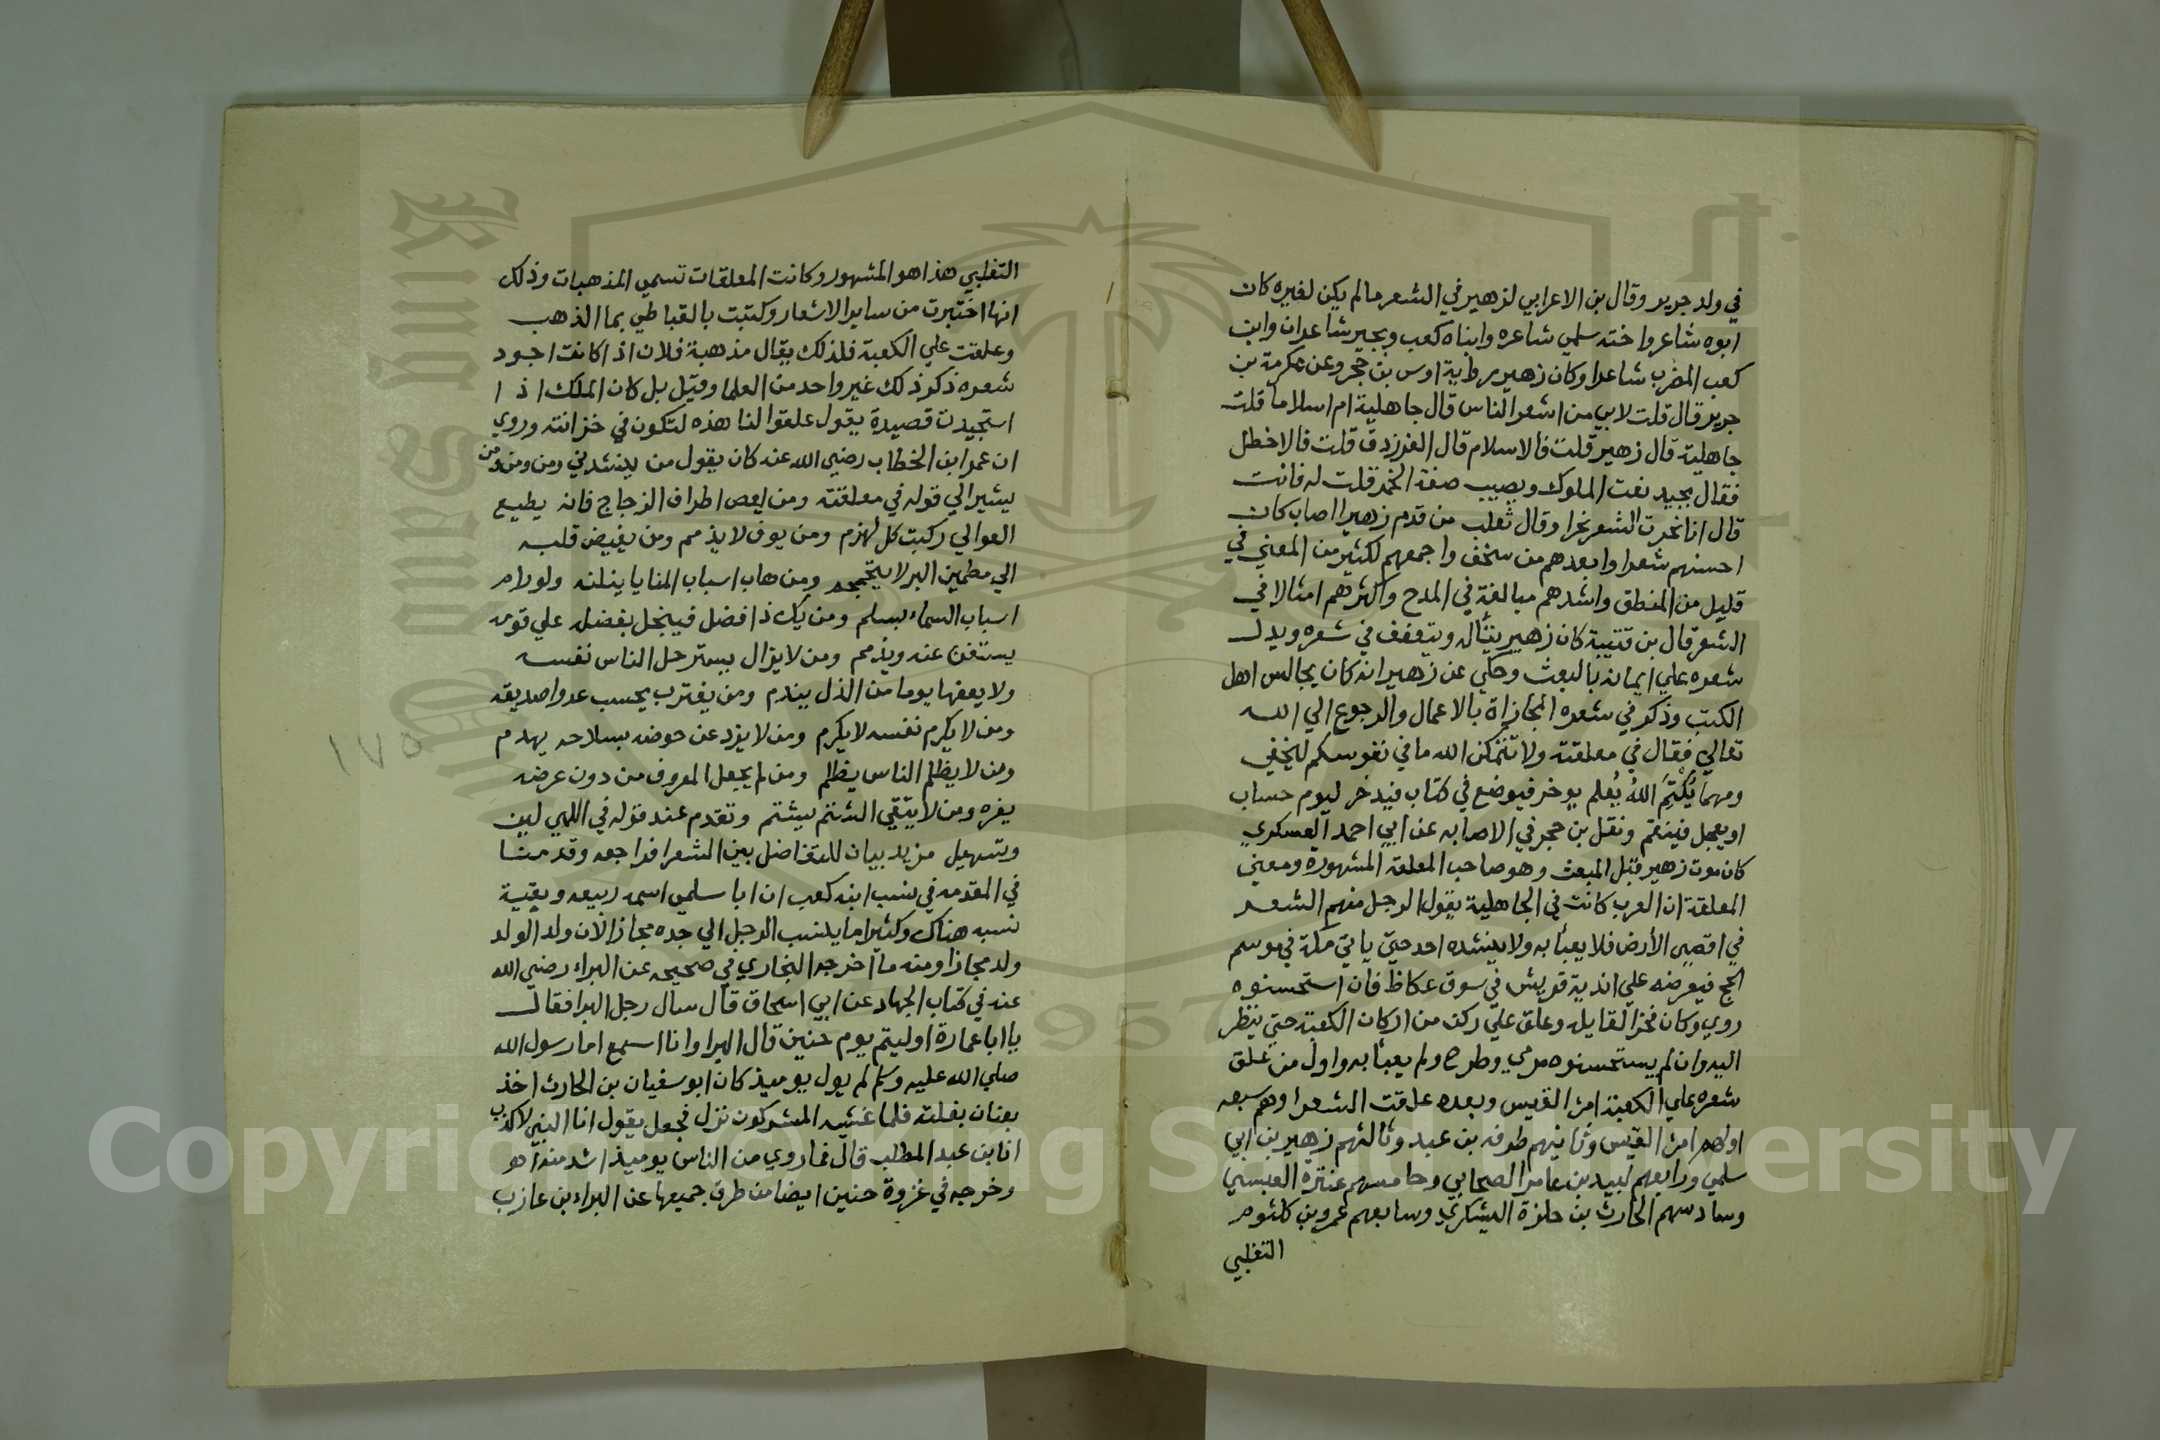 في ولد جرير وقال بن الاعرابي لزهير في الشعر ما لم يكن لغيره كان
ابوه شاعر واخته سلمي شاعره وابناه كعب وبجير شاعران وابن
كعب المضرب شاعرا وكان زهير راوية اوس بن حجر وعن عكرمة بن
جرير قال قلت لابي من اشعر الناس قال جاهلية ام اسلاما قلت
جاهلية قال زهير قلت فالاسلام قال الفرزدق قلت فالاخطل
فقال يجيد نعت الملوك ويصيب صفة الخمر قلت له فانت
قال انا نحرت الشعر نحرا وقال ثعلب من قدم زهيرا اصاب كان
احسنهم شعرا وابعدهم من سخف واجمعهم لكثير من المعني في
قليل من المنطق واشدهم مبالغة في المدح واكثرهم امثالا في
الشعر قال بن قتيبة كان زهير يتأله ويتعفف في شعره ويدل
شعره علي ايمانه بالبعث وحكي عن زهير انه كان يجالس اهل
الكتب وذكر في شعره المجازاة بالاعمال والرجوع الي الله
تعالي فقال في معلقته ولا تكتمن الله ما في نفوسكم ليخفي
ومهما يُكْتَمِ اللهُ يُعلم يوخر فيوضع في كتاب فيدخر ليوم حساب
او يعجل فينقم ونقل بن حجر في الاصابه عن ابي احمد العسكري
كان موت زهير قبل المبعث وهو صاحب المعلقة المشهوره ومعني
المعلقة ان العرب كانت في الجاهلية يقول الرجل منهم الشعر
في اقصي الأرض فلا يعبأ به ولا ينشده احد حتي ياتي مكة في موسم
الحج فيعرضه علي اندية قريش في سوق عكاظ فان استحسنوه
روي وكان فخرا لقايله وعلق علي ركن من اركان الكعبة حتي ينظر
اليه وان لم يستحسنوه رمي وطرح ولم يعبأ به واول من علق
شعره علي الكعبة امرا القيس وبعده علقت الشعرا وهم سبعه
اولهم امرا القيس وثانيهم طرفه بن عبد وثالثهم زهير بن ابي
سلمي ورابعهم لبيد بن عامر الصحابي وخامسهم عنترة العبسي
وسادسهم الحارث بن حلزة اليشكري وسابعهم عمرو بن كلثوم
التغلبي
التغلبي هذا هو المشهور وكانت المعلقات تسمي المذهبات وذلك
انها اختيرت من ساير الاشعار وكتبت بالقباطي بما الذهب
وعلقت علي الكعبة فلذلك يقال مذهبة فلان اذا كانت اجود
شعره ذكر ذلك غير واحد من العلما وقيل بل كان الملك اذا
استجيدت قصيدة يقول علقوا لنا هذه لتكون في خزانته وروي
ان عمر ابن الخطاب رضي الله عنه كان يقول من ينشدني ومن ومن ومن
يشير الي قوله في معلقته ومن يعص اطراف الزجاج فانه يطيع
العوالي ركبت كل لهزم ومن يوف لا يذمم ومن يفيض قلبه
الي مطمين البر لا يتجمجم ومن هاب اسباب المنايا ينلنه ولو رام
اسباب السماء بسلم ومن يك ذا فضل فيبخل بفضله علي قومه
يستغن عنه ويذمم ومن لا يزال يسترحل الناس نفسه
ولا يعفها يوما من الذل يندم ومن يغترب يحسب عدوا صديقه
ومن لا يكرم نفسه لا يكرم ومن لا يزد عن حوضه بسلاحه يهدم
ومن لا يظلم الناس يظلم ومن لم يجعل المعروف من دون عرضه
يفره ومن لا يتقي الشتم يشتم وتقدم عند قوله في اللهي لين
وتسهيل مزيد بيان للتفاضل بين الشعرا فراجعه وقدمنا
في المقدمه في نسب ابنه كعب ان ابا سلمي اسمه ربيعه وبقية
نسبه هناك وكثيرا ما ينسب الرجل الي جده مجازا لان ولد الولد
ولد مجازا ومنه ما اخرجه البخاري في صحيحه عن البراء رضي الله
عنه في كتاب الجهاد عن ابي اسحاق قال سال رجل البرا فقال
يا ابا عمارة اوليتم يوم حنين قال البرا وانا اسمع اما رسول الله
صلي الله عليه وسلم لم يول يوميذ كان ابو سفيان بن الحارث اخذ
بعنان بغلته فلما غشيه المشركون نزل فجعل يقول انا النبي لا كذب
انا بن عبد المطلب قال فما روي من الناس يوميذ اشد منه اهو
وخرجه في غزوة حنين ايضا من طرق جميعها عن البراء بن عازب
١٧٥
Copyright © King Saud University
1957